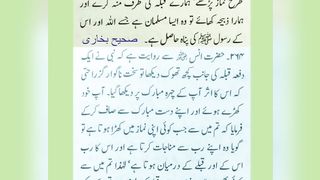 طرح نماز پڑھے ہمارے قبلہ کی طرف منہ کرے اور
ہمارا ذبیحہ کھائے تو وہ ایسا مسلمان ہے جسے اللہ اور اس
کے رسول ﷺ کی پناہ حاصل ہے۔ صحیح بخاری
۲۶۴۔ حضرت انس ؓ سے روایت ہے کہ نبی نے ایک
دفعہ قبلہ کی جانب کچھ تھوک دیکھا تو سخت ناگوار گزرا حتی
کہ اس کا اثر آپ کے چہرہ مبارک پر دیکھا گیا۔ آپ خود
کھڑے ہوئے اور اپنے دست مبارک سے صاف کر کے
فرمایا کہ تم میں سے جب کوئی اپنی نماز میں کھڑا ہوتا ہے تو
گویا وہ اپنے رب سے مناجات کرتا ہے اور اس کا رب
اس کے اور قبلے کے درمیان ہوتا ہے' لہٰذا تم میں سے